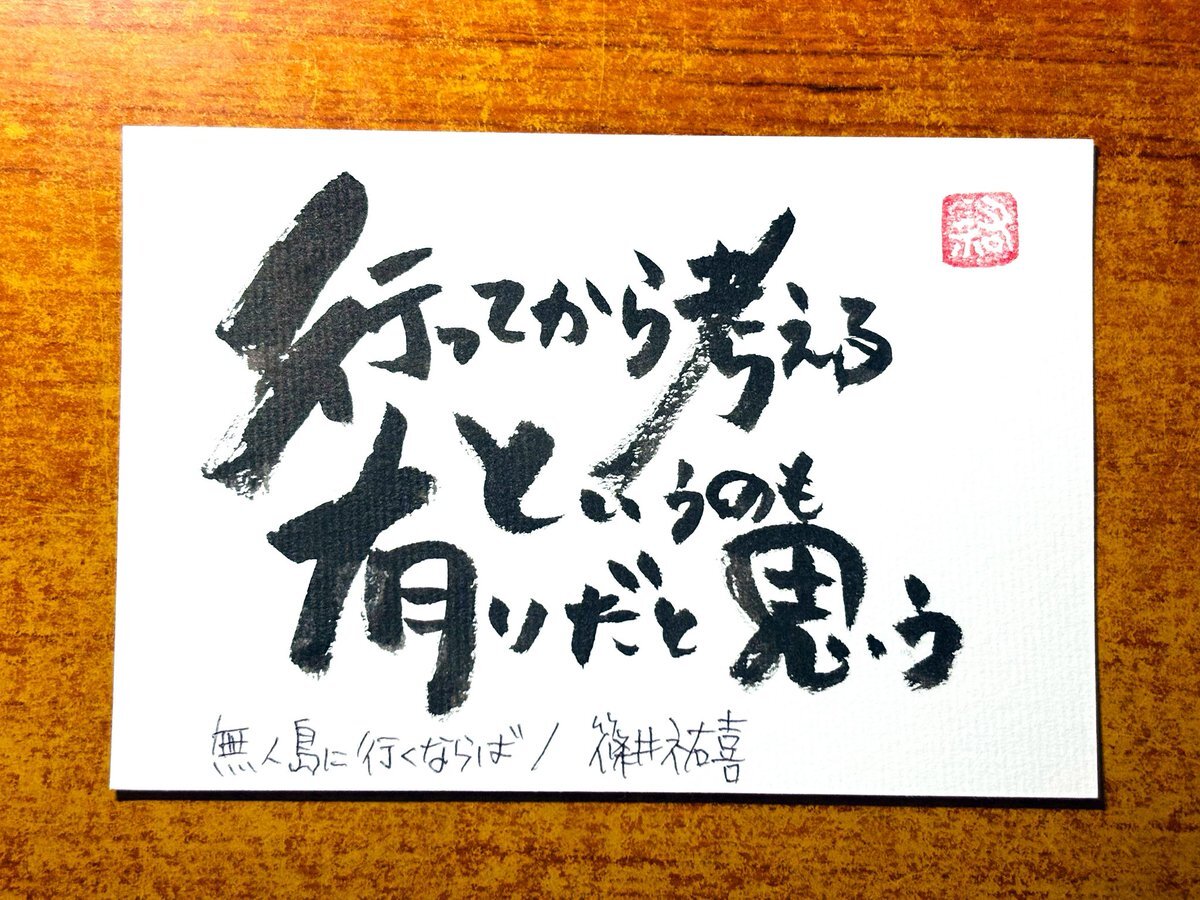 行ってから考える
というのも
有りだと思う
無人島に行くならば / 篠井祐喜